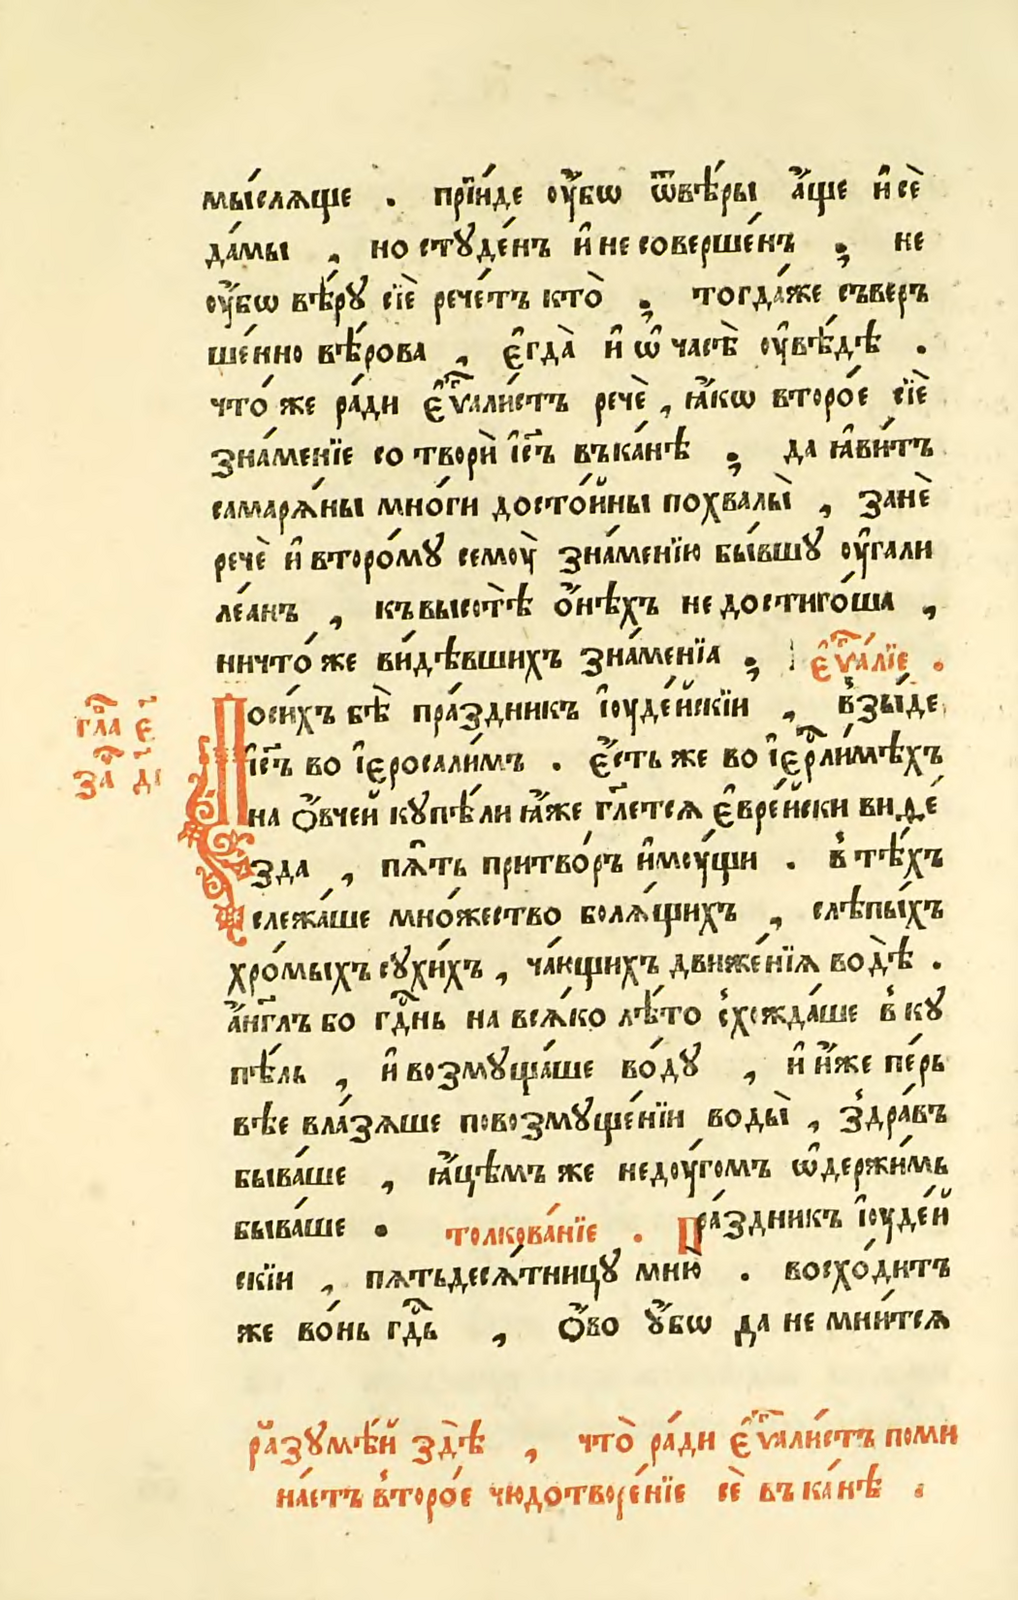 мы́слѧще . прїи́де оу҆́бѡ ѿвѣ́ры а҆́ще и҆ сѐ
да́мы , но студе́нъ и҆ не соверше́нъ ; не
оу҆́бѡ вѣ́рꙋ сїѐ рече́тъ кто̀ ; тогда́же съвер
ше́нно вѣ́рова , є҆гда̀ и҆ ѡ҆ часѣ̀ оу҆вѣ́дѣ .
что́ же ра́ди є҆ѵⷢ҇али́стъ речѐ , ꙗ҆́кѡ второ́е сїѐ
зна́менїе со творѝ і҆с҃ъ въка́нѣ ; да ꙗ҆ви́тъ
самарѧ́ны мно́ги досто́йны похвалы̀ , занѐ
речѐ и҆ второ́мꙋ семоу̀ зна́менїю бы́вшꙋ оу҆гали
ле́анъ , къвысотѣ̀ ѻ҆́нѣхъ недостиго́ша ,
ничто́ же ви́дѣвшихъ зна́менїѧ ; є҆ѵⷢ҇а́лїе .
гла҃ є҃
за҃ д҃і
Поси́хъ бѣ̀ пра́здникъ і҆оуде́йскїи , в̾зы́де
і҆с҃ъ во і҆єросали́мъ . є҆́сть же во і҆єрⷭ҇лимѣхъ
на ѻ҆́вчей кꙋпѣ́ли ꙗ҆́же гл҃етсѧ є҆вре́йски виѳе́
зда , пѧ҆́ть притво́ръ и҆мꙋ́щи . в̾ тѣ́хъ
слежа́ше мно́жество болѧ́щихъ , слѣпы́хъ
хро́мыхъ сꙋхи́хъ , ча́ющихъ движе́нїѧ водѣ̀ .
а҆́нг҃лъ бо гдⷭ҇нь на всѧ́ко лѣ́то с̾хожда́ше в̾ кꙋ
пѣ́ль , и҆ возмꙋща́ше во́дꙋ , и҆ и҆́же пе́рь
вѣе вла́зѧше повозмꙋще́нїи воды̀ , з̾дра́въ
быва́ше , ꙗ҆́цѣмъ же недоу́гомъ ѡ҆держи́мь
быва́ше . толкова́нїе . Пра́здникъ і҆оуде́й
скїи , пѧтьдесѧ́тницꙋ мню̀ . восхо́дитъ
же во́нь гдⷭ҇ь , ѻ҆́во ꙋ҆́бѡ да не мни́тсѧ
разꙋмѣ́й здѣ̀ , что̀ ра́ди є҆ѵⷢ҇али́стъ поми
на́етъ в̾торо́е чюдотворе́нїе сѐ въ ка́нѣ .